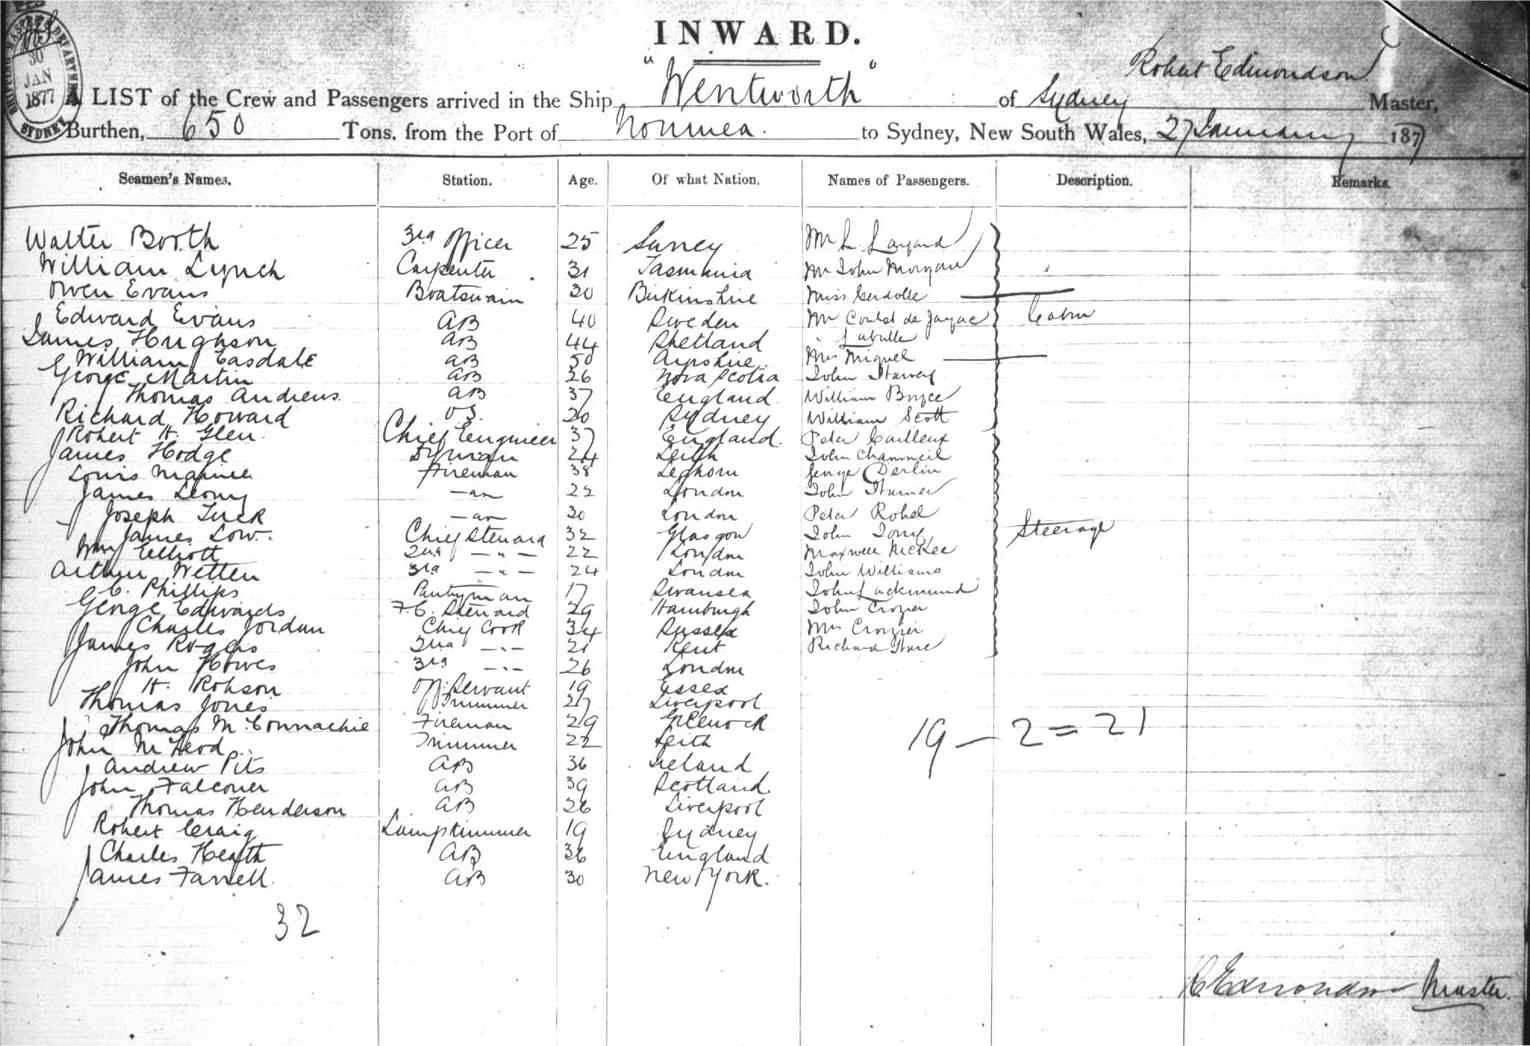 30
JAN
1877
SYDNEY
INWARD.
Robert Edmondson
A LIST of the Crew and Passengers arrived in the Ship "Wentworth" of Sydney Master,
Burthen, 650 Tons, from the Port of Noumea. to Sydney, New South Wales, 27 January 1877
Seamen's Names. Station. Age. Of what Nation. Names of Passengers. Description. Remarks.
Walter Booth 3rd Officer 25 Surrey Mr L Layard
William Lynch Carpenter 31 Tasmania Mr John Morgan
Owen Evans Boatswain 30 Miss
Edward Evans AB 40 Sweden Mr de Cabin
James Hughson AB 44 Shetland Labulle
William Easdale AB 50 Ayrshire Miguel
George Martin AB 26 Nova Scotia John
Thomas Andrews AB 37 England William Boyce
Richard Howard OS. 20 Sydney William Scott
Robert H. Glen. Chief Engineer 37 England. Peter Cailleux
James Hodge 24 Leith John
Louis Fireman 38 Leghorn George
James 22 London John
Joseph Tuck 30 London Peter Rohel
James Low. Chief Steward 32 Glasgow John Steerage
Wm Elliott 2nd — " — 22 London Maxwell McKee
Arthur Wetten 3rd — " — 24 London John Williams
G. C. Phillips Pantryman 17 Swansea John Lackmund
George Edwards F. C. Steward 29 Hamburgh John Crozier
Charles Jordan Chief Cook 34 Sussex Mrs Crozier
James Rogers 2nd — " — 21 Kent Richard Hare
John Howes 3rd — " — 26 London
H. Robson Off. Servant 19 Essex
Thomas Jones Trimmer 27 Liverpool
Thomas McConnachie Fireman 29 Greenock
John McLeod Trimmer 22 Leith
19 — 2 = 21
Andrew Pits AB 36 Ireland
John Falconer AB 39 Scotland
Thomas Henderson AB 26 Liverpool
Robert Craig Lamptrimmer 19 Sydney
Charles Heath AB 36 England
James Farrell. AB 30 New York.
32
R Edmondson Master.